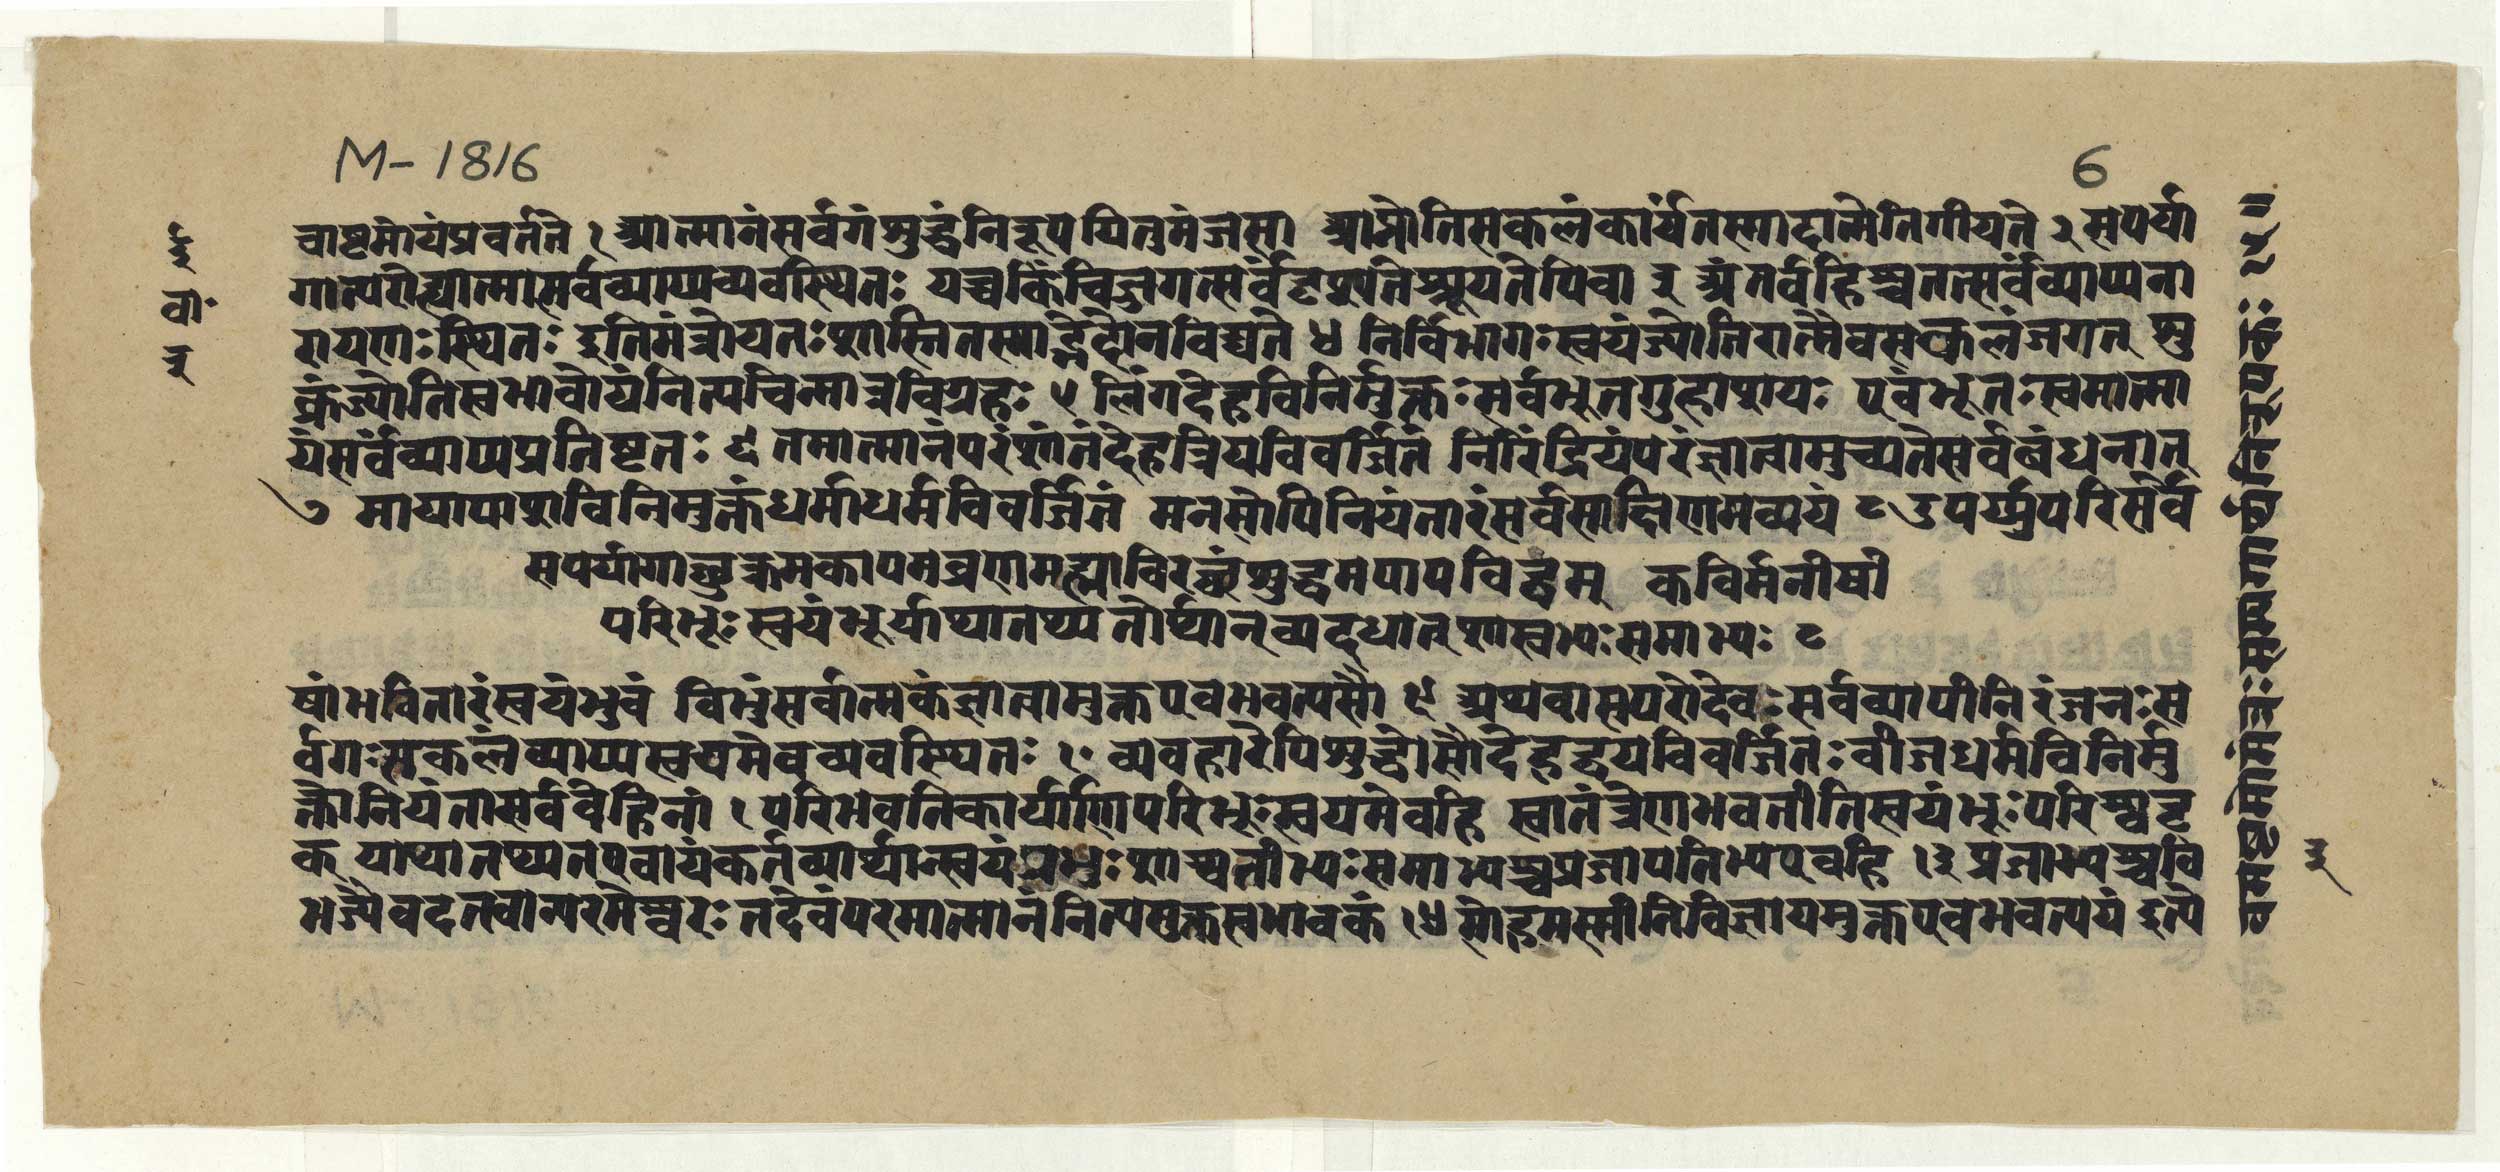 M-1816
6
चाष्टमोयंप्रवर्तते १ आत्मानंसर्वगंशुद्धंनिरूपयितुमंजसा आप्नोतिसकलंकार्यंतस्मादात्मेतिगीयते २ सपर्या
गात्परोह्यात्मासर्वव्याप्यव्यवस्थितः यच्चकिंचिज्जगत्सर्वंदृश्यतेश्रूयतेपिवा ३ अंतर्वहिश्चतत्सर्वंव्याप्यना
रायणःस्थितः इतिमंत्रोयतःशास्तितस्माद्भेदोनविद्यते ४ निर्विभागःस्वयंज्योतिरात्मैवसकलंजगत् शु
क्रंज्योतिस्वभावोयंनित्यचिन्मात्रविग्रहः ५ लिंगदेहविनिर्मुक्तःसर्वभूतगुहाशयः एवंभूतःस्वमात्मा
यंसर्वंव्याप्यप्रतिष्टतः ६ तमात्मानंपरंशांतंदेहत्रियविवर्जितं निरिंद्रियंपरंज्ञात्वामुच्यतेसर्वबंधनात्
७ मायापाशविनिमुक्तंधर्माधर्मविवर्जितं मनसोपिनियंतारंसर्वसाक्षिणमव्ययं ८ उपर्य्युपरिसर्वे
सपर्यगाछुक्रमकायमव्रणमस्नाविरꣳशुद्धमपापविद्धम् कविर्मनीषी
परिभूः स्वयंभूर्याथातथ्यतोर्थान्व्यदधात्शाश्वतीभ्यःसमाभ्यः ८
षांभवितारंस्वयंभुवं विभुंसर्वात्मकंज्ञात्वामुक्तएवभवत्यसौ ९ अथवासपरोदेवःसर्वव्यापीनिरंजनःस
र्वगःसकलंव्याप्यस्वयमेवव्यवस्थितः १० व्यवहारेपिशुद्धोसौदेहद्वयविवर्जितःवीजधर्मविनिर्मु
क्तोनियंतासर्वदेहिनां १ परिभवतिकार्याणिपरिभूःस्वयमेवहि स्वातंत्रेणभवतीतिस्वयंभूःपरिश्वदृ
क् याथातथ्यतएवायंकर्तव्यार्थान्स्वयंप्रभुः शाश्वतीभ्यःसमाभ्यश्चप्रजापतिभ्यएवहि १३ प्रजाभ्यश्चवि
भज्यैवदत्तवान्परमेश्वरः तदेवंपरमात्मानंनित्यमुक्तस्वभावकं १४ सोहमस्मीतिविज्ञायमुक्तएवभवत्ययं इत्ये
ई
वा॰
३
३